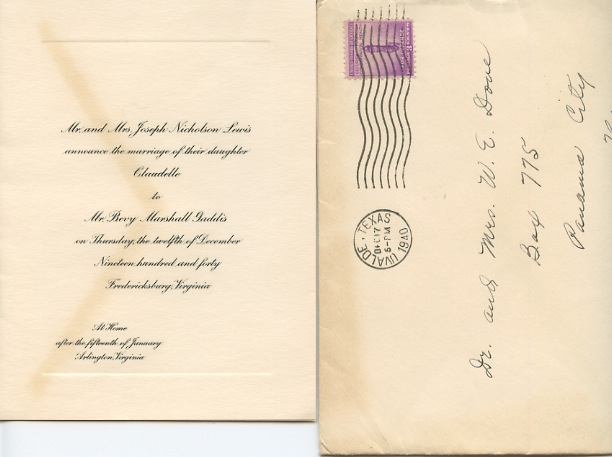 Mr. and Mrs. Joseph Nicholson Lewis
announce the marriage of their daughter
Claudelle
to
Mr. Bevy Marshall Gaddis
on Thursday, the twelfth of December
Nineteen hundred and forty
Fredericksburg, Virginia
At Home
after the fifteenth of January
Arlington, Virginia
UVALDE, TEXAS
DEC 17
6-PM
1940
Dr. and Mrs. W. E. Dove
Box 775
Panama City